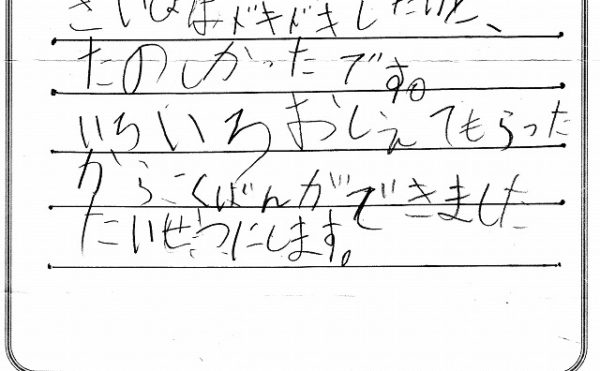 さいしょはドキドキしたけど、
たのしかったです。
いろいろおしえてもらった
からこくばんができました
たいせつにします。